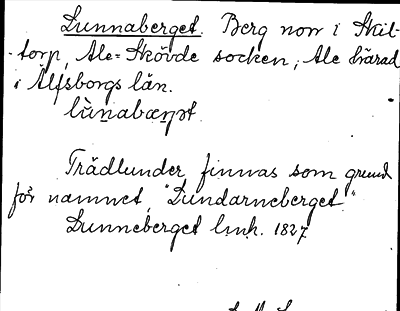 Lunnaberget. Berg norr i Skil-
-torp, Ale-Skövde socken, Ale härad
i Älfsborgs län.
lùnabærjət.
Trädlunder finnas som grund
för namnet, "Lundarneberget"
Lunneberget lmk. 1827